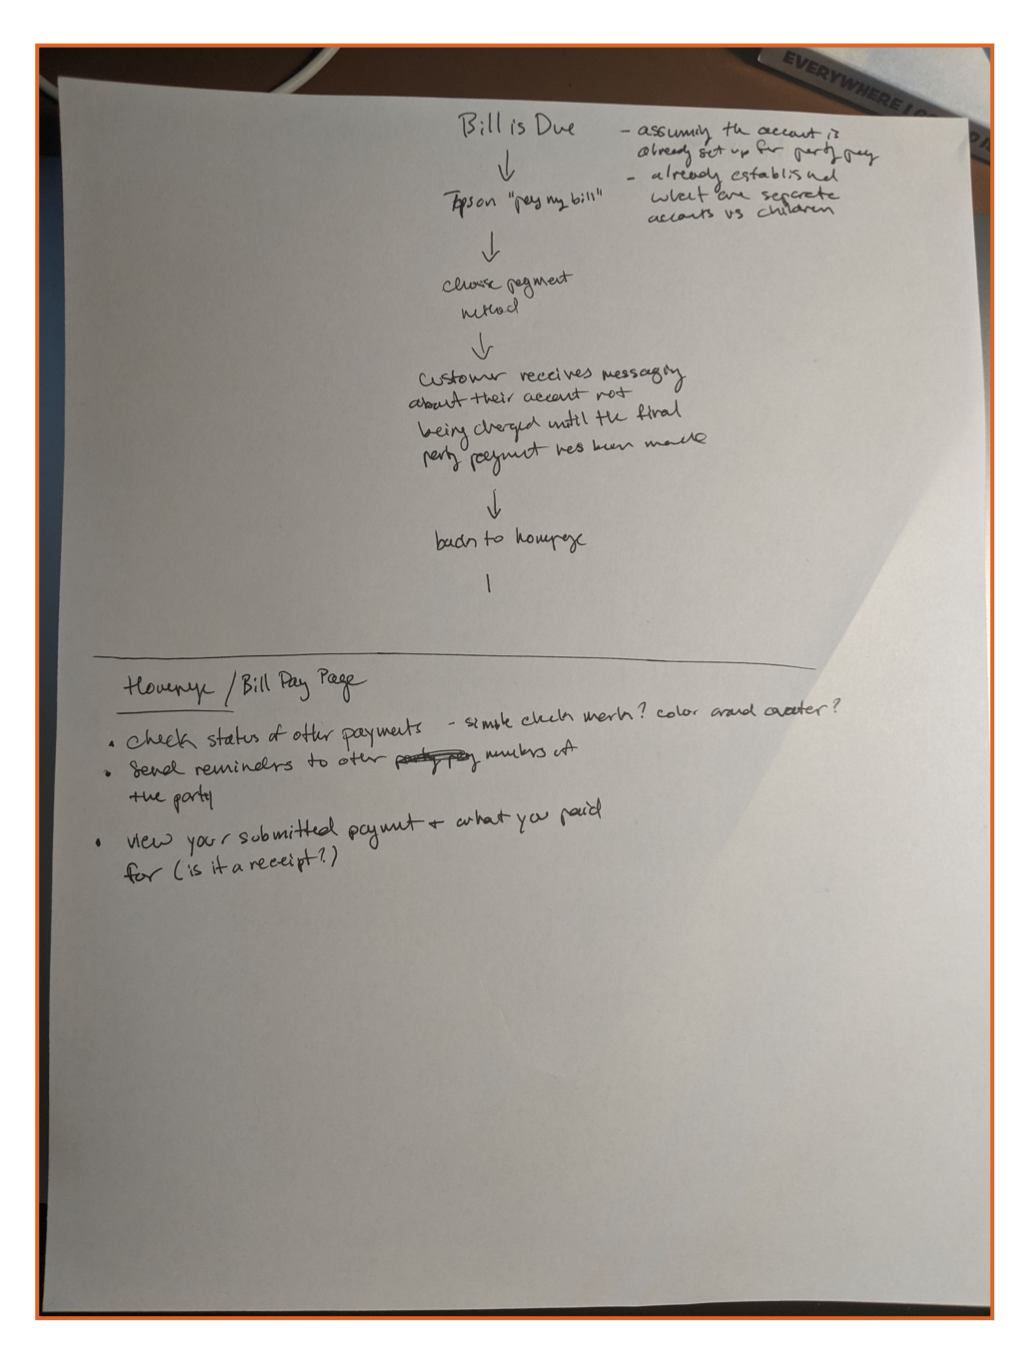 EVERYWHERE I
Bill is Due
- assuming the account is
already set up for party pay
- already established
what are separate
accounts vs children
↓
Taps on "pay my bill"
↓
choose payment
method
↓
Customer receives messaging
about their account not
being charged until the final
party payment has been made
↓
back to homepage
Homepage / Bill Pay Page
• check status of other payments - simple check mark? color around avatar?
• Send reminders to other members of
the party
• view your submitted payment + what you paid
for (is it a receipt?)